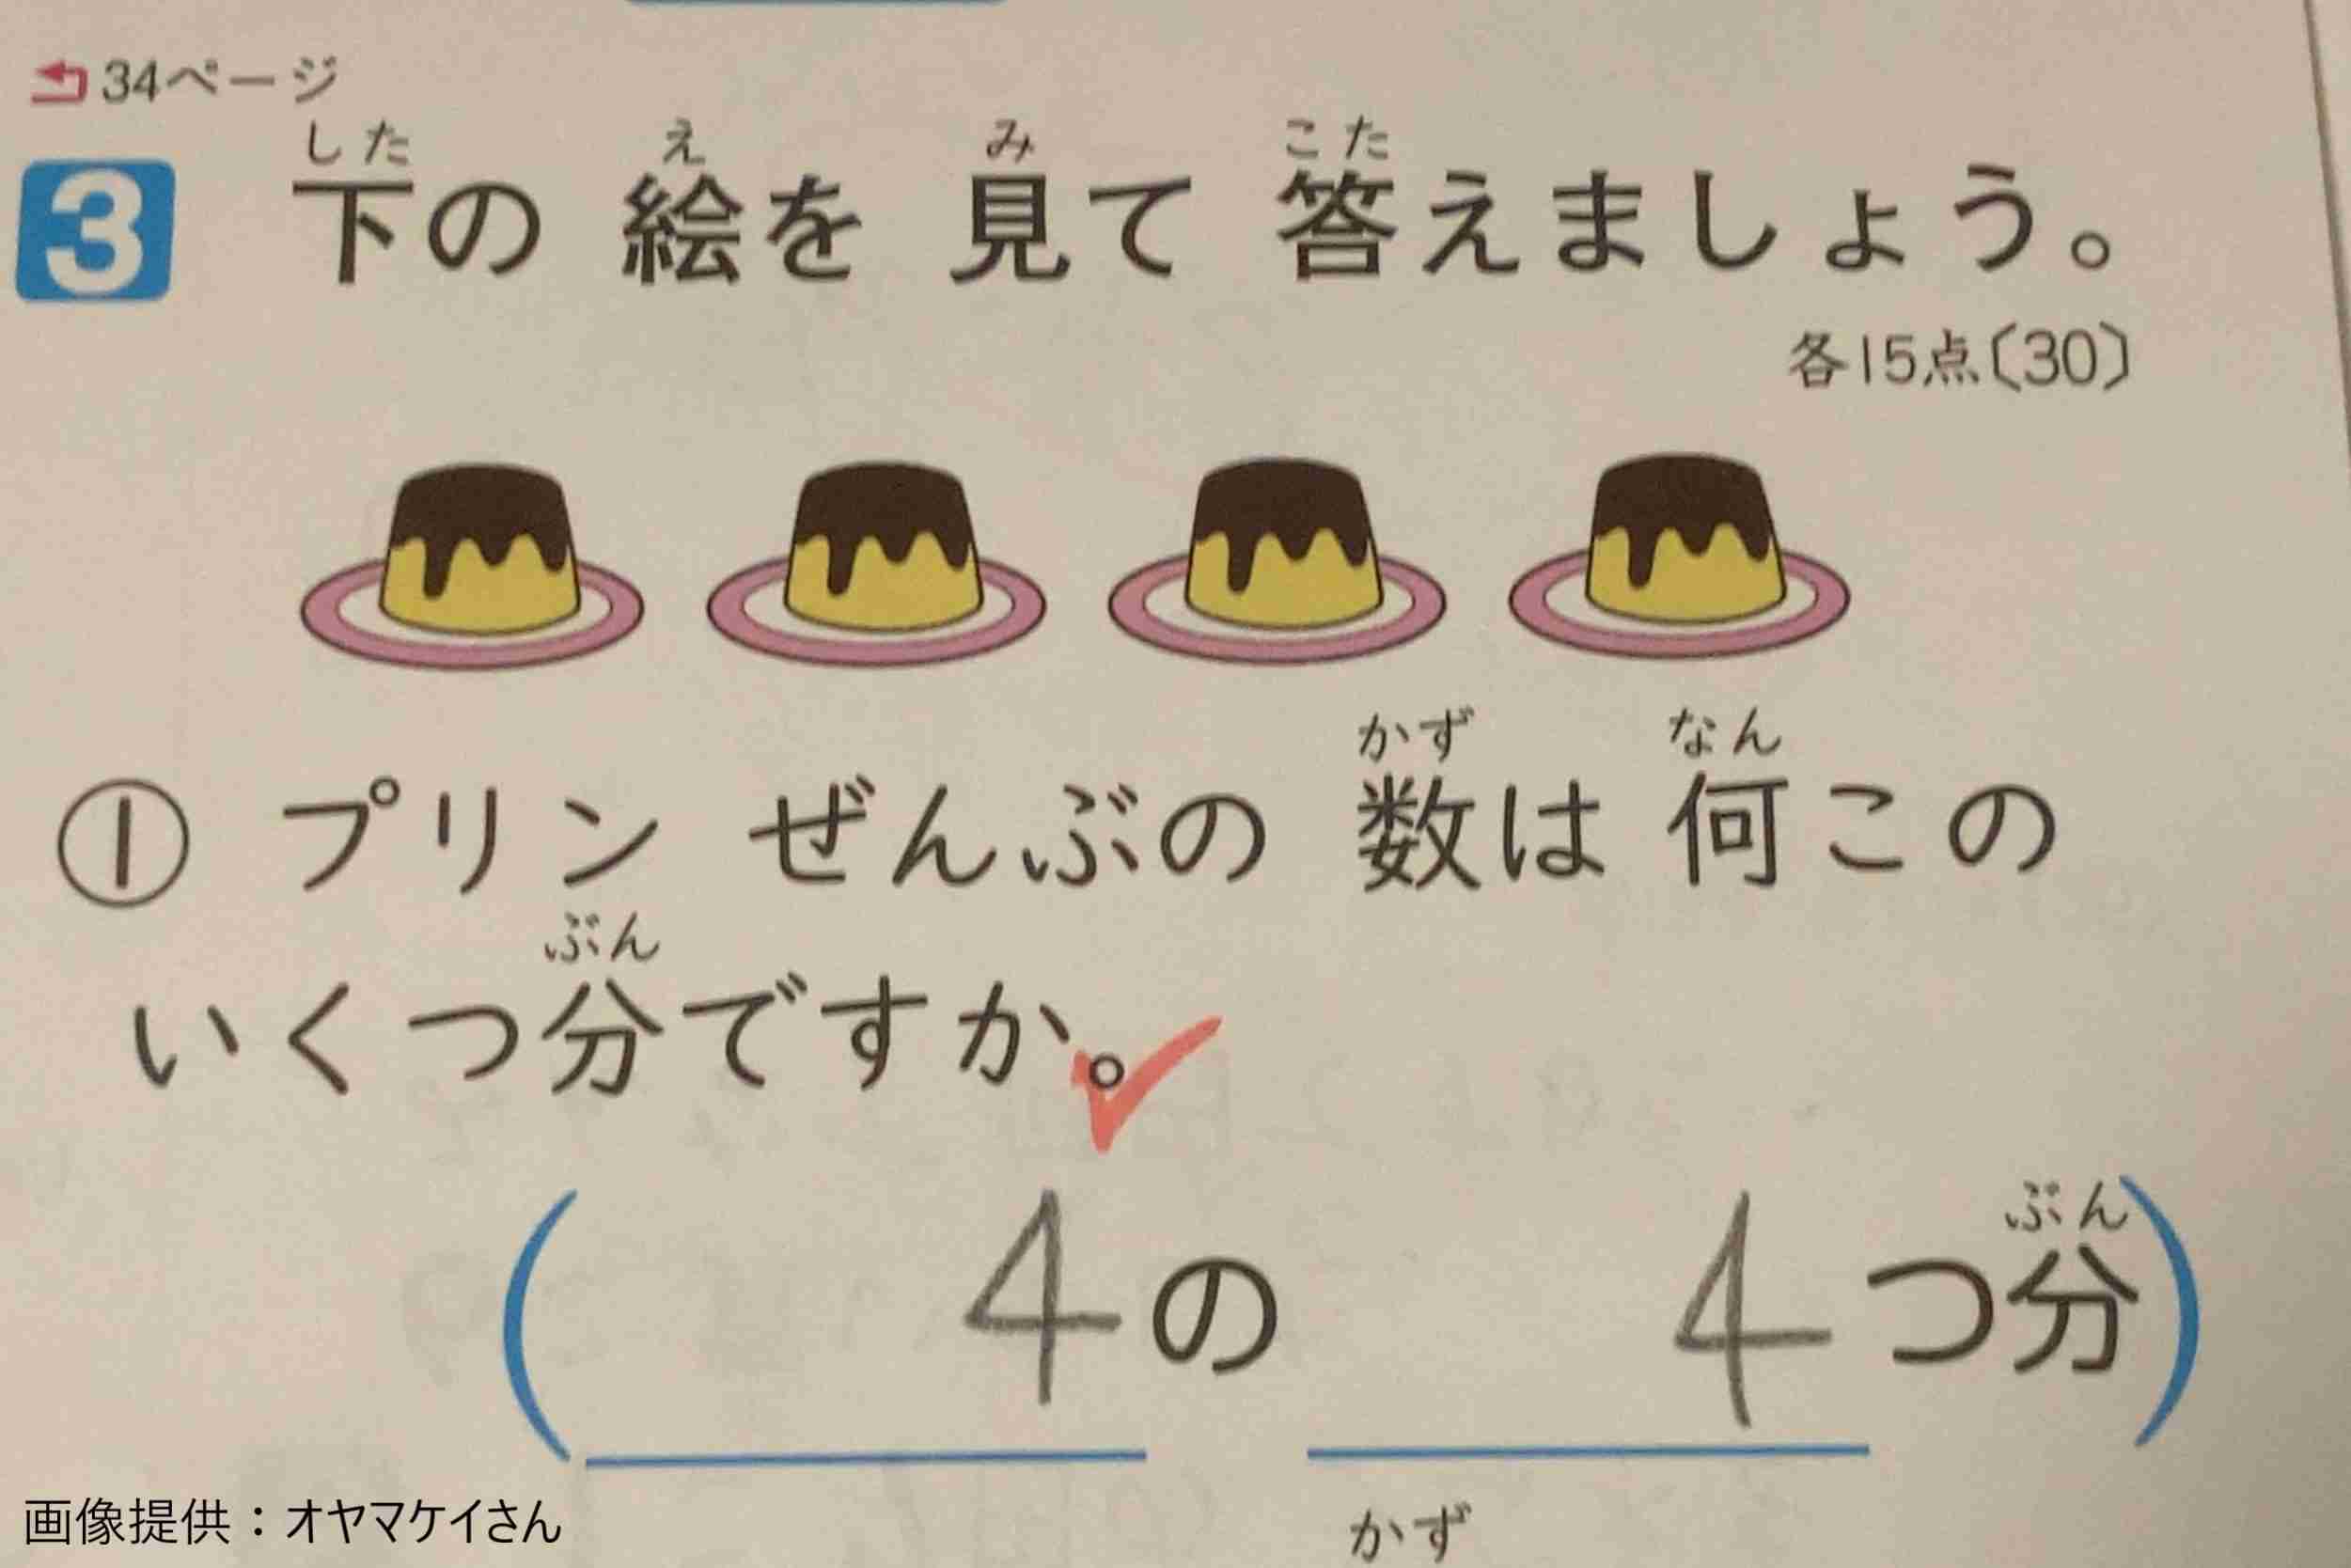 34ページ
した え み こた
3 下の 絵を 見て 答えましょう。
各15点〔30〕
かず なん
① プリン ぜんぶの 数は 何この
ぶん
いくつ分ですか。
ぶん
( 4の 4つ分)
かず
画像提供：オヤマケイさん